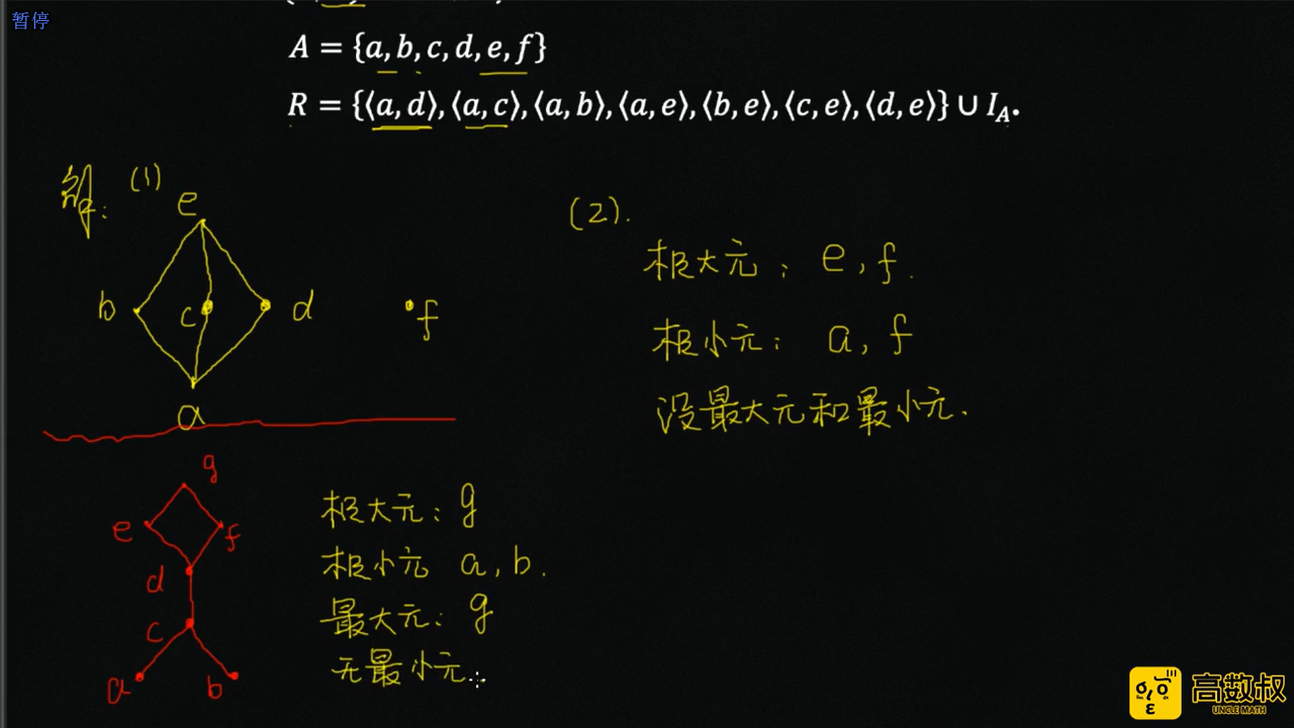 暂停
A = {a, b, c, d, e, f}
R = {⟨a, d⟩, ⟨a, c⟩, ⟨a, b⟩, ⟨a, e⟩, ⟨b, e⟩, ⟨c, e⟩, ⟨d, e⟩} ∪ I_A.
解: (1)
e
b c d f
a
(2).
极大元: e, f.
极小元: a, f
没最大元和最小元.
g
e f
d
c
a b
极大元: g
极小元 a, b.
最大元: g
无最小元.
高数叔
UNCLE MATH